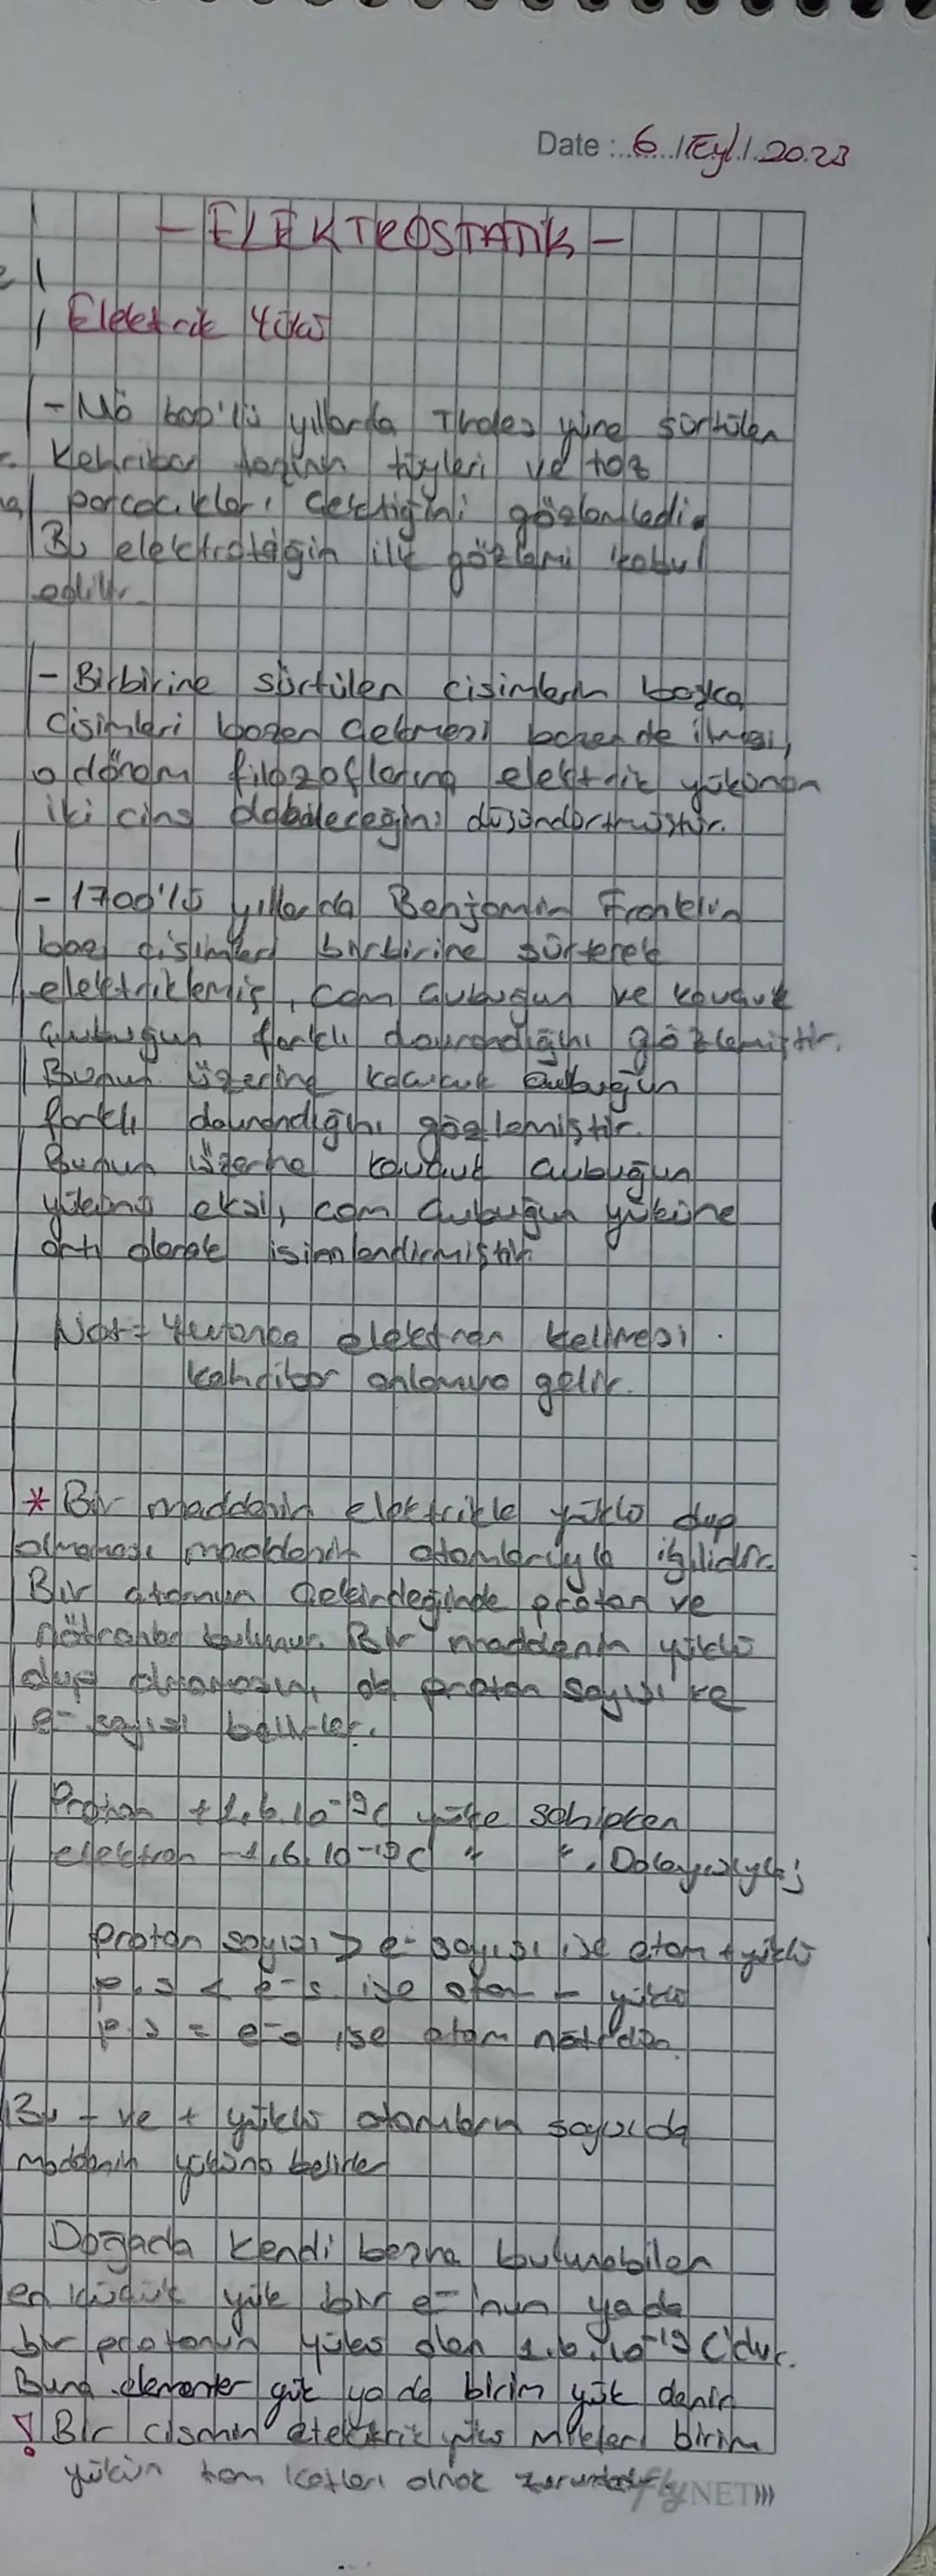 Date : 6 / Eyl. / 2023
- ELEKTROSTATİK -
Elektrik Yükü
- Mö 600'lü yıllarda Thales yüne sürtülen
Kehribar taşının tüyleri ve toz
parçacıkları çektiğini gözlemledi.
Bu elektrostatiğin ilk gözlemi kabul
edilir.
- Birbirine sürtülen cisimlerin başka
cisimleri bazen çekmesi bazende itmesi,
o dönem filozoflarına elektrik yükünün
iki cins olabileceğini düşündürtmüştür.
- 1700'lü yıllarda Benjamin Franklin
bazı cisimleri birbirine sürterek
elektriklemiş, cam çubuğun ve kauçuk
çubuğun farklı davrandığını gözlemiştir.
Bunun üzerine kauçuk çubuğun
farklı davrandığını gözlemiştir.
Bunun üzerine kauçuk çubuğun
yüküne eksi, cam çubuğun yüküne
artı olarak isimlendirmiştir.
Not= Yunanca elektron kelimesi
kehribar anlamına gelir.
* Bir maddenin elektrikle yüklü olup
olmaması maddenin atomlarıyla ilgilidir.
Bir atomun çekirdeğinde proton ve
nötronlar bulunur. Bir maddenin yüklü
olup olmamasını, proton sayısı ve
e- sayısı belirler.
Proton +1,6.10-19C yüke sahipken
elektron -1,6.10-19C " ". Dolayısıyla;
Proton sayısı > e- sayısı ise atom + yüklü
p.s < e-s. ise atom - yüklü
p.s = e-s ise atom nötrdür.
Bu - ve + yüklü atomların sayısı da
maddenin yükünü belirler
Doğada kendi başına bulunabilen
en küçük yük bir e-'nun ya da
bir protonun yükü olan 1.6.10-19 C'dur.
Buna elementer yük ya da birim yük denir.
! Bir cismin elektrik yükü miktarı birim
yükün tam katları olmak zorundadır.
flyNET)))